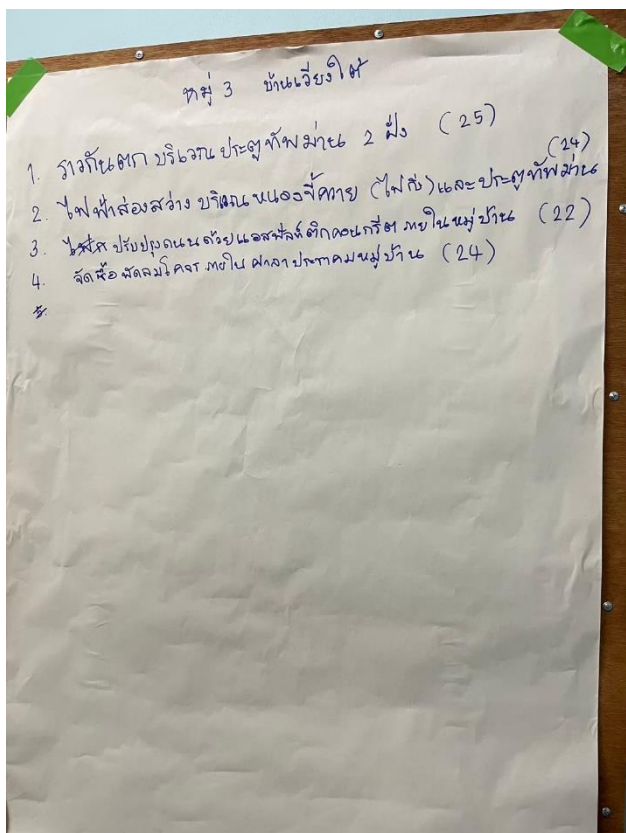 หมู่ 3 บ้านเวียงใต้
1. ราวกันตก บริเวณ ประตูทัพม่าน 2 ฝั่ง (25)
2. ไฟฟ้าส่องสว่าง บริเวณ หนองขี้ควาย (ไฟกิ่ง) และ ประตูทัพม่าน (24)
3. ปรับปรุงถนนด้วยแอสฟัลท์ติกคอนกรีต ภายในหมู่บ้าน (22)
4. จัดซื้อ พัดลมโคจร ภายใน ศาลา ประชาคมหมู่บ้าน (24)